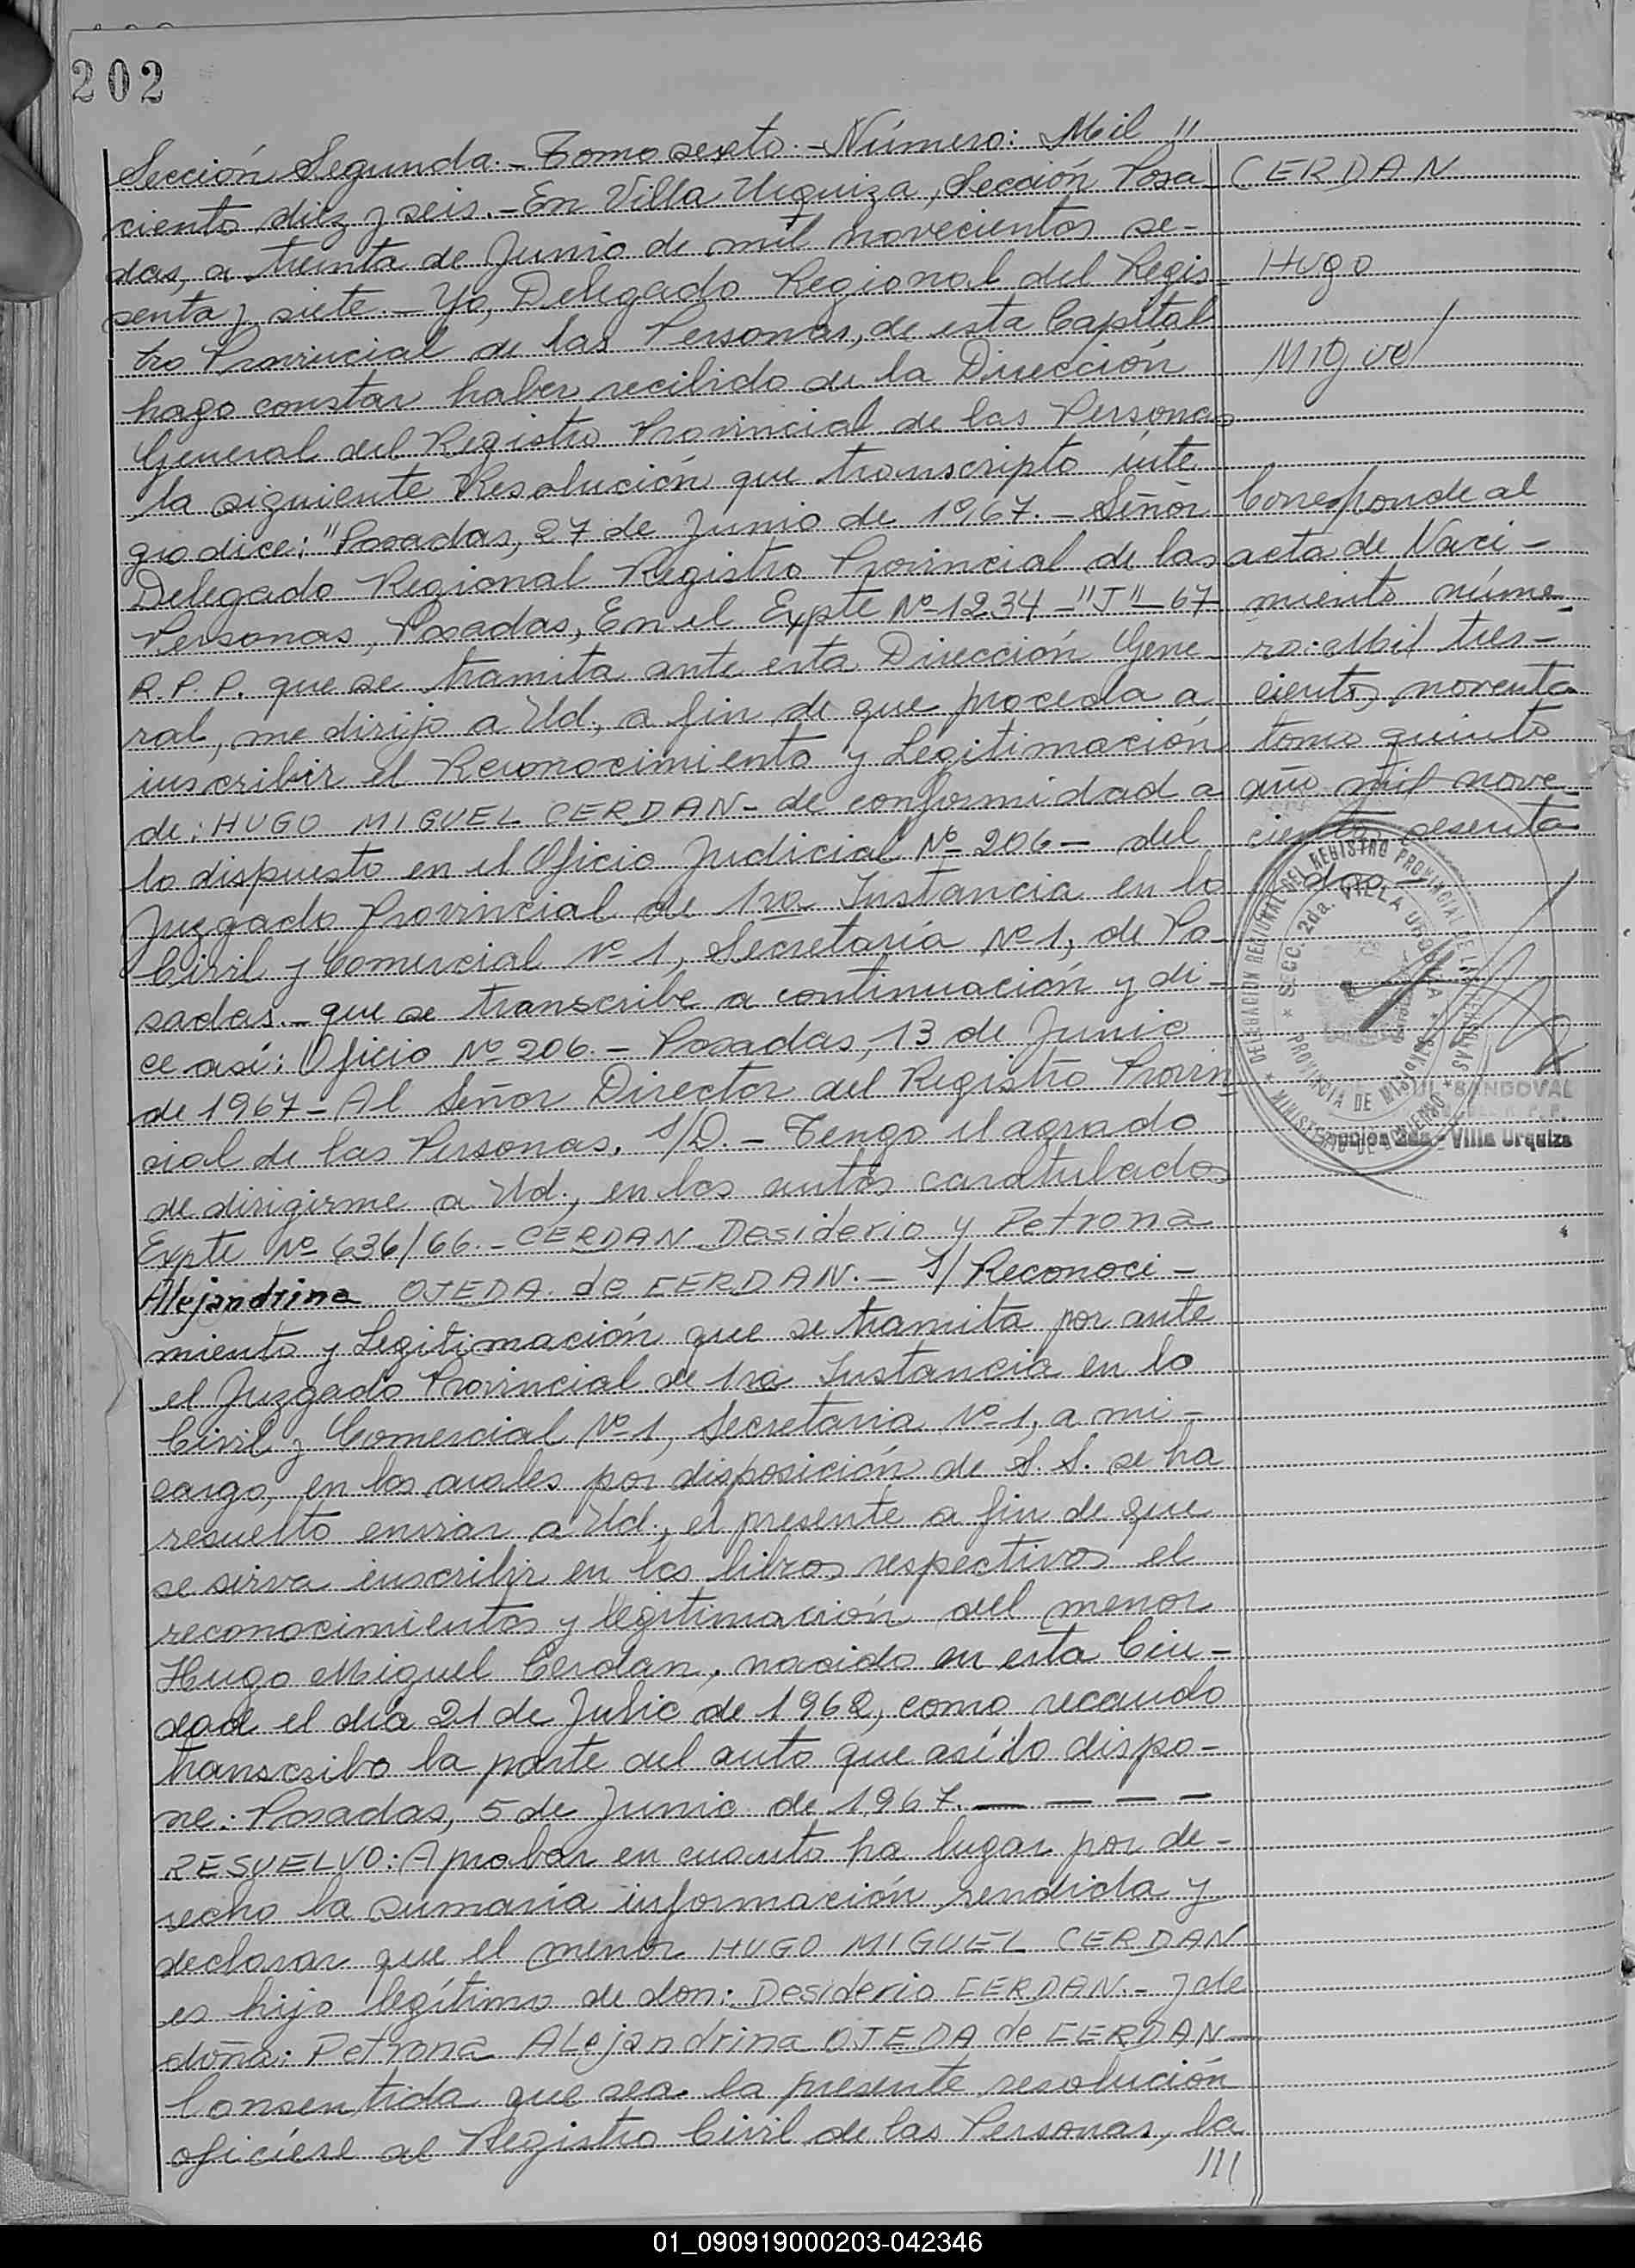 202
Sección Segunda.- Tomo sexto.- Número: Mil "
ciento diez y seis.- En Villa Urquiza, Sección Posa-
das, a treinta de Junio de mil novecientos se-
senta y siete.- Yo, Delegado Regional del Regis-
tro Provincial de las Personas, de esta Capital
hago constar haber recibido de la Dirección
General del Registro Provincial de las Personas
la siguiente Resolución que transcripto inte
gro dice: "Posadas, 27 de Junio de 1967.- Señor
Delegado Regional Registro Provincial de las
Personas, Posadas, En el Expte Nº 1234 - "J" - 67
R.P.P. que se tramita ante esta Dirección Gene-
ral, me dirijo a Ud., a fin de que proceda a
inscribir el Reconocimiento y Legitimación
de: HUGO MIGUEL CERDAN- de conformidad a
lo dispuesto en el Oficio Judicial Nº 206 - del
Juzgado Provincial de 1ra Instancia en lo
Civil y Comercial Nº 1, Secretaría Nº 1, de Po-
sadas.- que se transcribe a continuación y di-
ce así: Oficio Nº 206.- Posadas, 13 de Junio
de 1967- Al Señor Director del Registro Provin-
cial de las Personas. S/D.- Tengo el agrado
de dirigirme a Ud., en los autos caratulados
Expte Nº 636/66.- CERDAN Desiderio y Petrona
Alejandrina OJEDA de CERDAN.- S/ Reconoci-
miento y Legitimación que se tramita por ante
el Juzgado Provincial de 1ra Instancia en lo
Civil y Comercial Nº 1, Secretaria Nº 1, a mi-
cargo, en los cuales por disposición de S.S. se ha
resuelto enviar a Ud., el presente a fin de que
se sirva inscribir en los libros respectivos el
reconocimientos y legitimación del menor
Hugo Miguel Cerdan, nacido en esta Ciu-
dad el día 21 de Julio de 1962, como recaudo
transcribo la parte del auto que así lo dispo-
ne: Posadas, 5 de Junio de 1967. — — — —
RESUELVO: Aprobar en cuanto ha lugar por de-
recho la sumaria información rendida y
declarar que el menor HUGO MIGUEL CERDAN
es hijo legítimo de don: Desiderio CERDAN.- y de
doña: Petrona ALejandrina OJEDA de CERDAN
Consentida que sea la presente resolución
ofíciese al Registro Civil de las Personas, la
///
CERDAN
Hugo
Miguel
Corresponde al
acta de Naci-
miento núme-
ro: Mil tres-
cientos noventa
tomo quinto
año mil nove-
cientos sesenta
y dos-
DELEGACION REGIONAL DEL REGISTRO PROVINCIAL DE LAS PERSONAS
* SECC. 2da. VILLA URQUIZA *
PROVINCIA DE MISIONES
* MINISTERIO DE GOBIERNO *
SANDOVAL
2da - Villa Urquiza
01_090919000203-042346